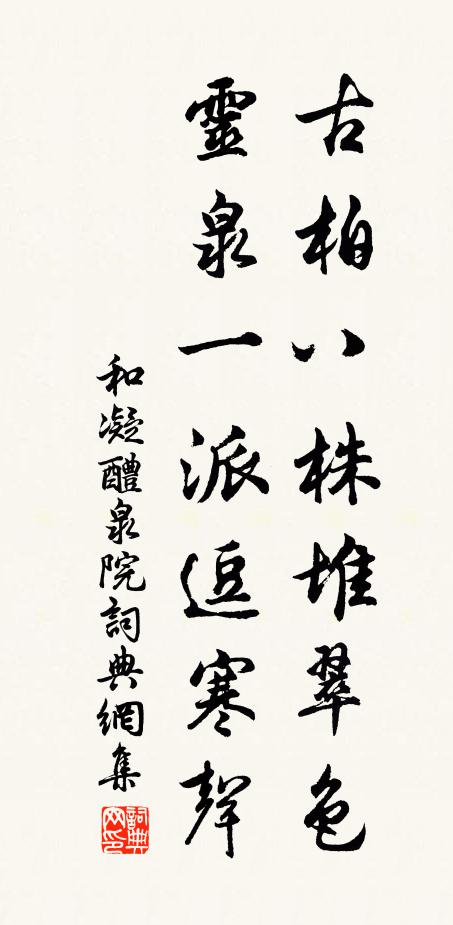 古柏八株堆翠色
靈泉一派逗寒聲
和凝醴泉院詞典網集
詞典网印